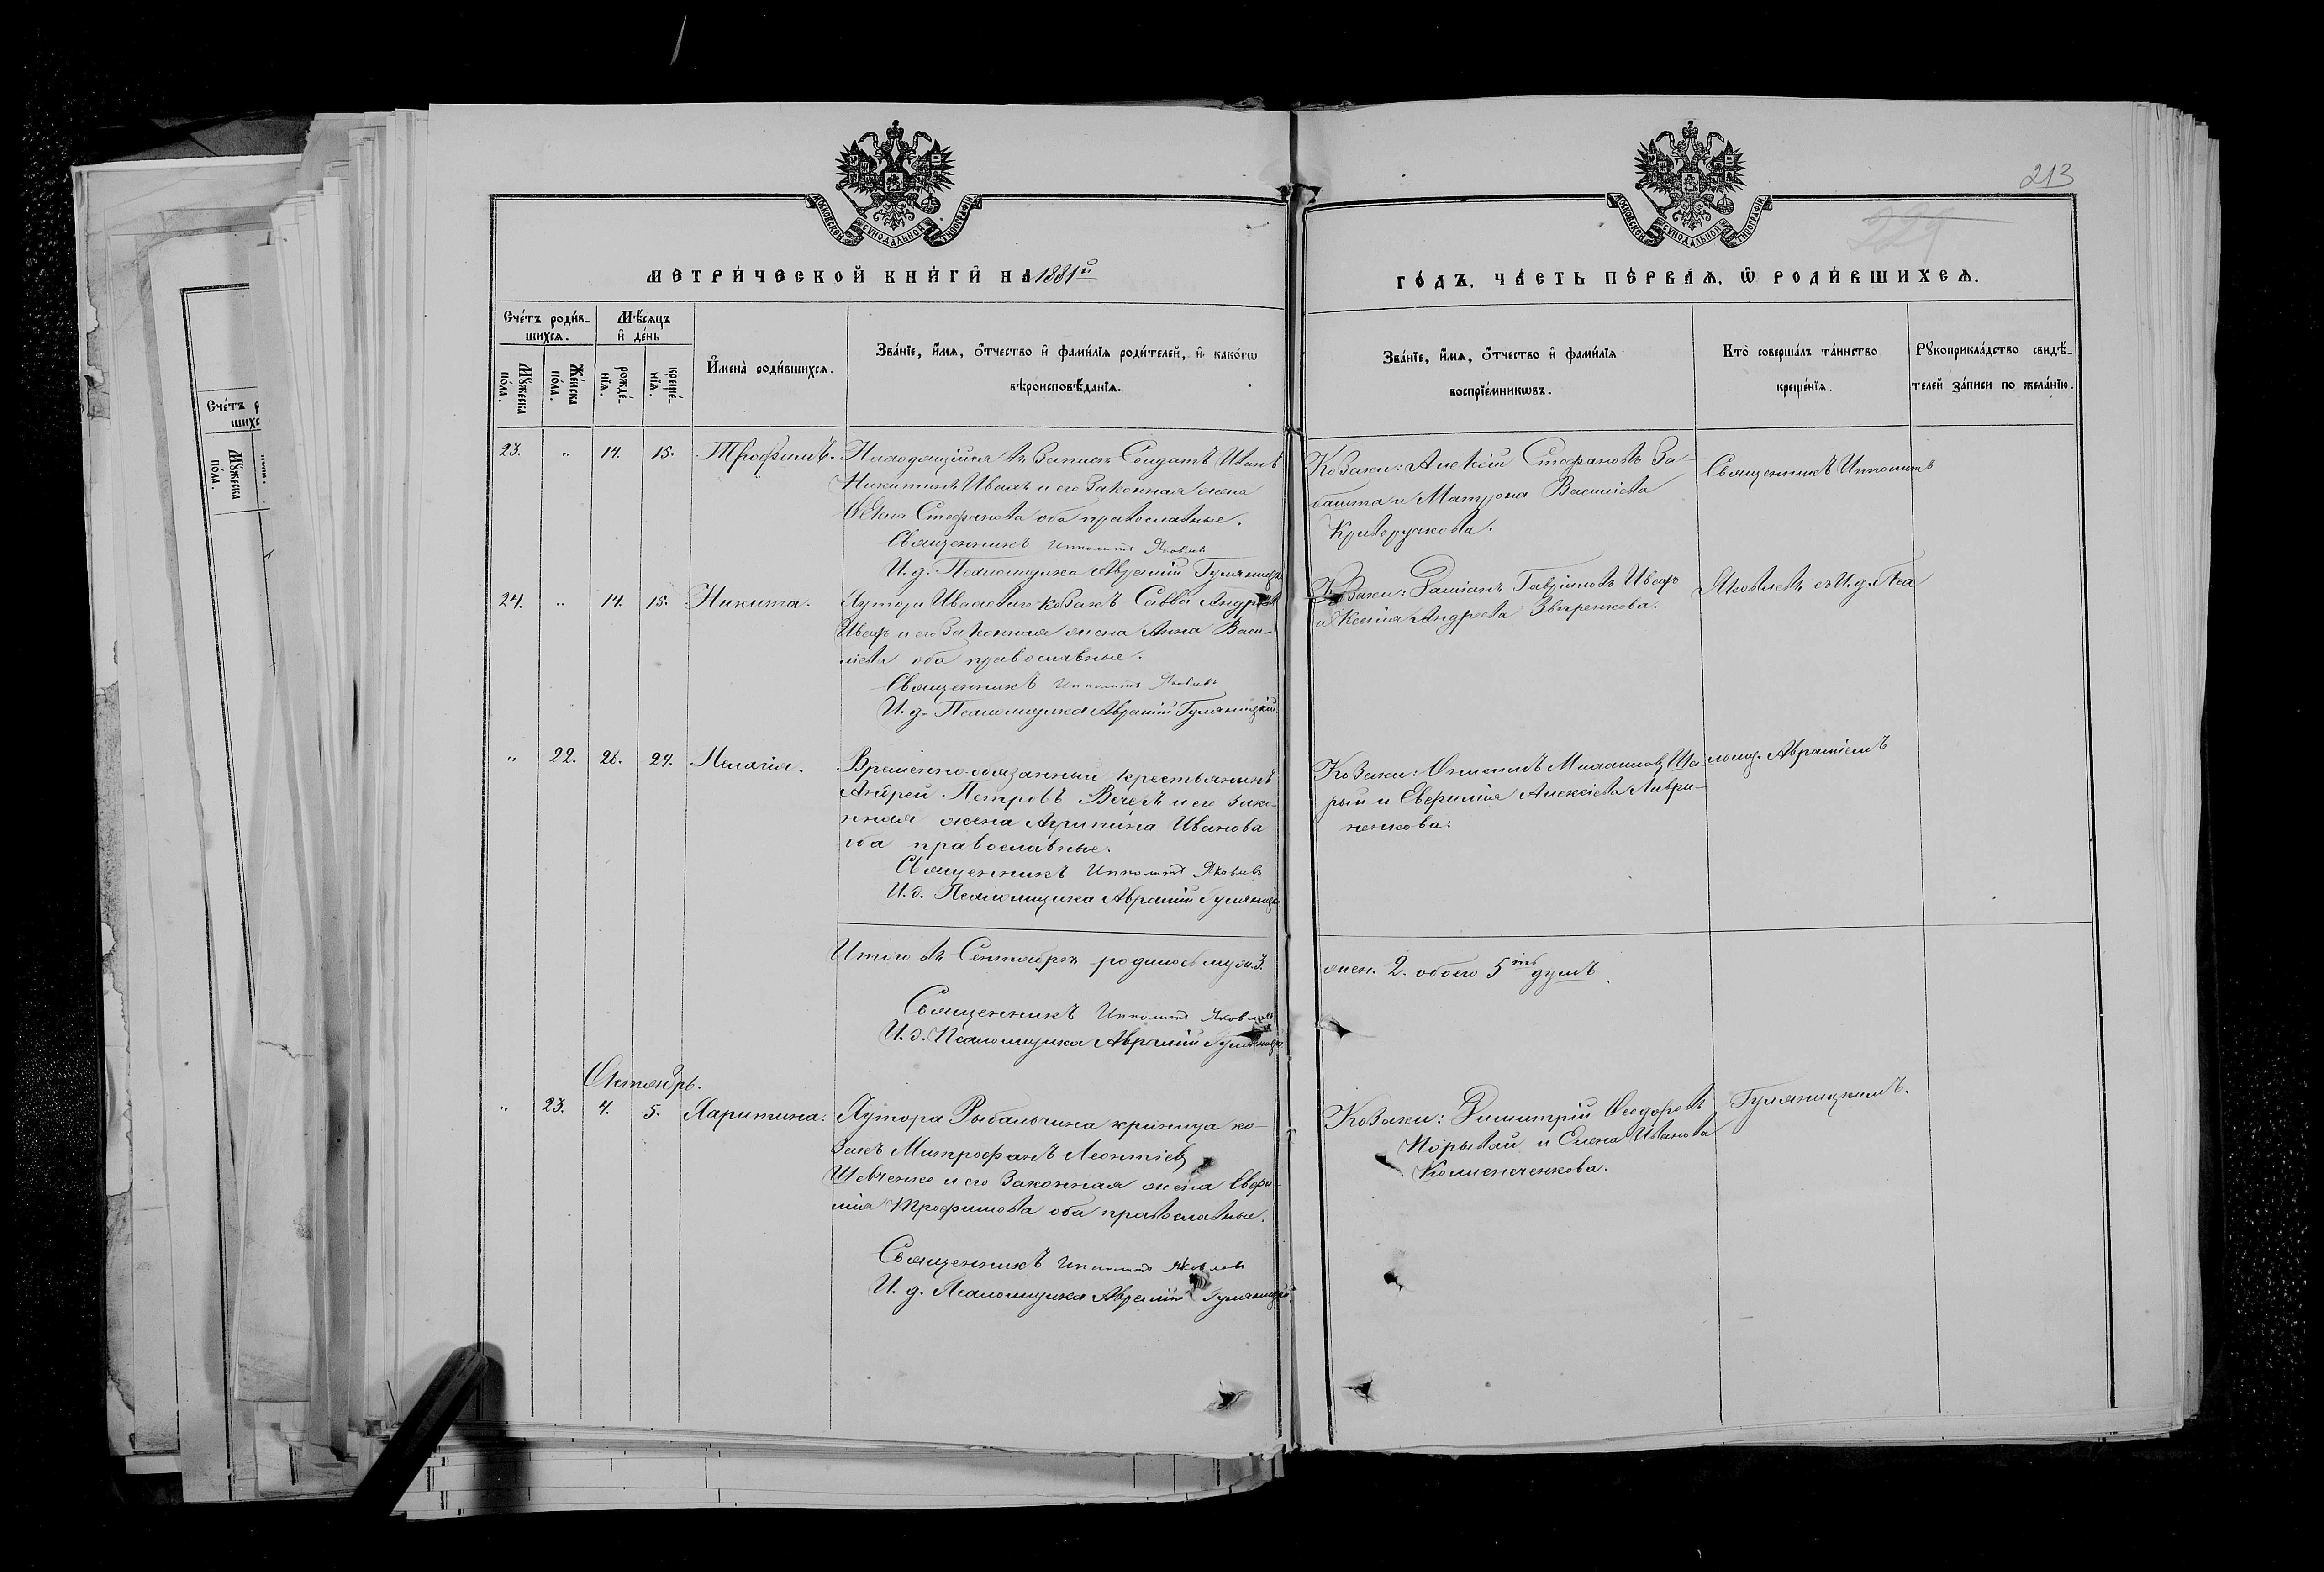 213
229
МОСКОВСКОЙ СѴНОДАЛЬНОЙ ТИПОГРАФІИ
МОСКОВСКОЙ СѴНОДАЛЬНОЙ ТИПОГРАФІИ
МЕТРИ́ЧЕСКОЙ КНИ́ГИ НА 1881й
ГО́ДЪ, ЧА́СТЬ ПЕ́РВАЯ, Ѡ РОДИ́ВШИХСЯ.
Сче́тъ роди́в-
шихся.
Мꙋжеска по́ла.
Же́нска по́ла.
Мѣ́сяцъ
и де́нь
рожде́-
нїя.
креще́-
нїя.
Имена̀ роди́вшихся.
Зва́нїе, и́мя, о́тчество и фами́лїя роди́телей, и како́гѡ
вѣроисповѣ́данїя.
Зва́нїе, и́мя, о́тчество и фами́лїя
воспрїе́мникѡвъ.
Кто̀ соверша́лъ та́инство
креще́нїя.
Рꙋкоприкла́дство свидѣ́-
телей за́писи по жела́нїю.
23. " 14. 15. Трофимъ.
въ Запасѣ Солдатъ Иванъ
Никитинъ Ивахъ и его Законная жена
Стефанова оба православные.
Священникъ Ипполитъ Яковлев
И. д. Псаломщика Аврамій Гуляницкій
Козаки: Алексій Стефановъ За-
башта и Матрона Василіева
Криворучкова.
Священникъ Ипполитъ
24. " 14. 15. Никита.
Хутора козакъ Савва Андреевъ
Ивахъ и его Законная жена Анна Васи-
ліева оба православные.
Священникъ Ипполитъ Яковлевъ
И. д. Псаломщика Аврамій Гуляницкій
Козаки: Даміанъ Гавріиловъ Ивахъ
и Ксенія Андреева Звѣренкова.
Яковлевъ съ И. д. Пса
" 22. 28. 29. Пелагія.
Временно-обязанный крестьянинъ
Андрей Петровъ и его Зако-
нная жена Агрипина Иванова
оба православные.
Священникъ Ипполитъ Яковлевъ
И. д. Псаломщика Аврамій Гуляницкій
Козаки: Ша-
рый и Евфимія Алексіева Лаври-
ненкова.
ломщ. Авраміемъ
Итого въ Сентябрѣ родилось муж. 3.
жен. 2. обоего 5ть душъ.
Священникъ Ипполитъ Яковлевъ
И. д. Псаломщика Аврамій Гуляницкій
Октябрь.
" 23. 4. 5. Харитина.
Хутора Рыбальчина криница ко-
закъ Митрофанъ Леонтіевъ
Шевченко и его Законная жена Евфи-
мія Трофимова оба православные.
Священникъ Ипполитъ Яковлевъ
И. д. Псаломщика Аврамій Гуляницкій
Козаки: Димитрій Ѳеодоровъ
Порывай и Елена Иванова
Гуляницкимъ.
Сче́тъ р
шихс
Мꙋжеска
по́ла.